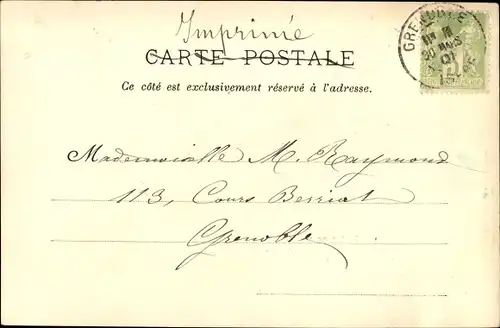 Imprimé
CARTE POSTALE
Ce côté est exclusivement réservé à l'adresse.
Mademoiselle M. Raymond
113, Cours Berriat
Grenoble
GRENOBLE
01